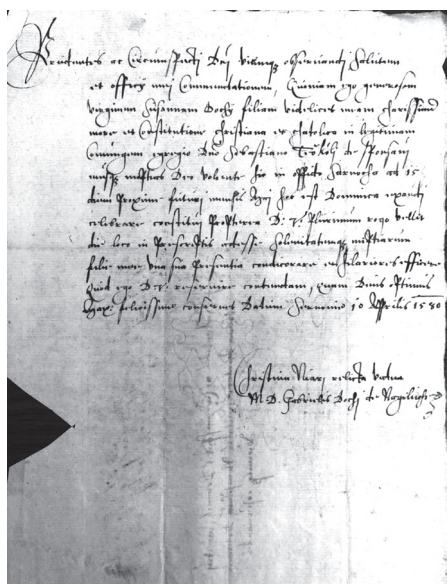 Prudentes ac Circumspecti Dni vicini observandi salutem
et officy mei Commendationem, Quoniam ego generosam
virginem Susannam Dochi filiam videlicet meam charissimā
more et Constitutione christiana et chatolica in legitimam
Coniugem egregio Dno Sebastiano Tököli
nuptias Deo volente hic in oppido ad 15
diem proxime futuri mensis May hoc est Dominica
celebrare constitui propterea D: V: Plurimum rogo velit
die loco in prescriptis adesse solennitatemque nuptiarum
filie mee sua presentia condecorare et hilariores efficere
quod ego D V reservire contendam, quam Deus optimus
Max: felicissime conservet Datum 10 Aprilis 1580
Christina relicta vidua
M D Gabrielis Dochi de Nagylucho